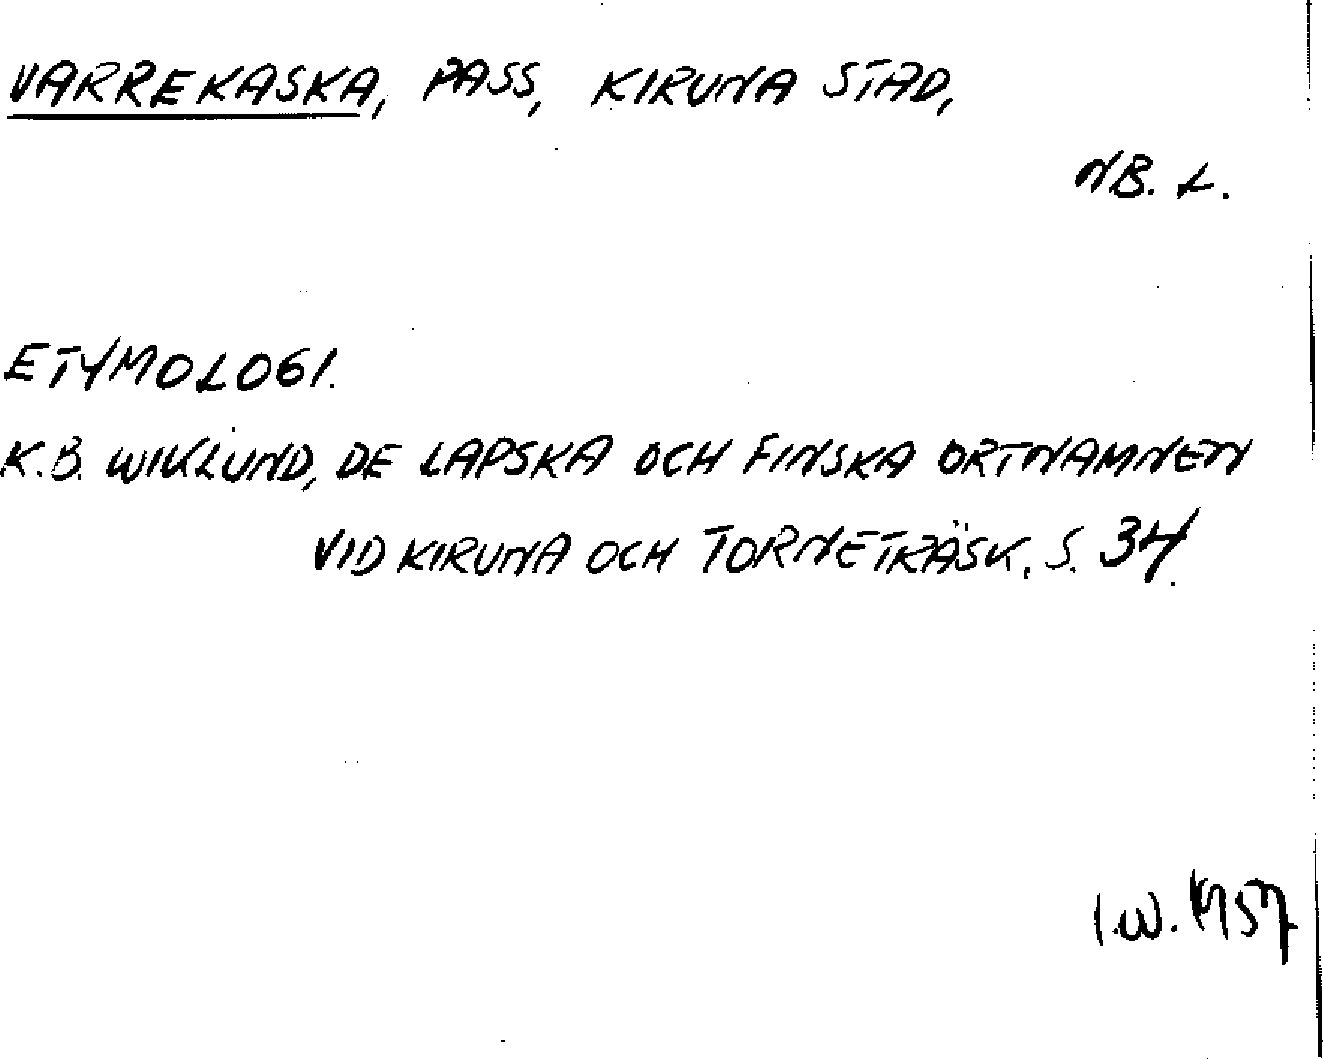 VARREKASKA, PASS, KIRUNA STAD,
NB. L.
ETYMOLOGI.
K.B. WIKLUND, DE LAPSKA OCH FINSKA ORTNAMNEN
VID KIRUNA OCH TORNETRÄSK, S. 34.
I.W. 1957